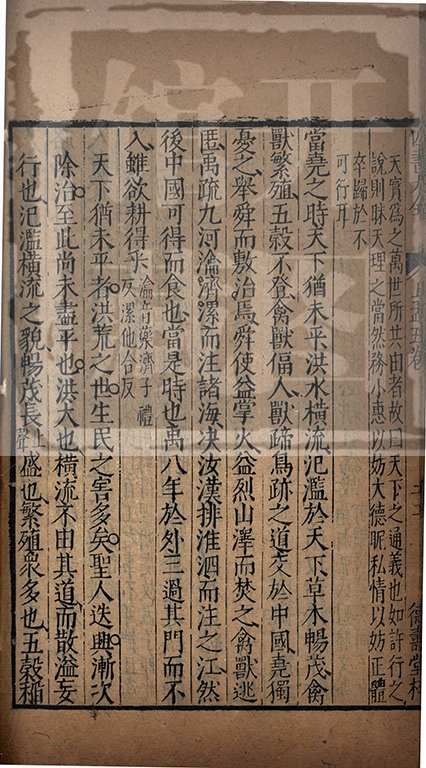 天實為之萬世所共由者故曰天下之通義也如許行之
說則昧天理之當然務小惠以妨大德昵私情以妨正體
卒歸於不
可行耳
當堯之時天下猶未平洪水橫流氾濫於天下草木暢茂禽
獸繁殖五穀不登禽獸偪人獸蹄鳥跡之道交於中國堯獨
憂之舉舜而敷治焉舜使益掌火益烈山澤而焚之禽獸逃
匿禹疏九河瀹濟漯而注諸海决汝漢排淮泗而注之江然
後中國可得而食也當是時也禹八年於外三過其門而不
入雖欲耕得乎
瀹音藥濟子禮
反漯他合反
天下猶未平者洪荒之世生民之害多矣聖人迭興漸次
除治至此尚未盡平也洪大也橫流不由其道而散溢妄
行也氾濫橫流之貌暢茂長上聲盛也繁殖衆多也五穀稻